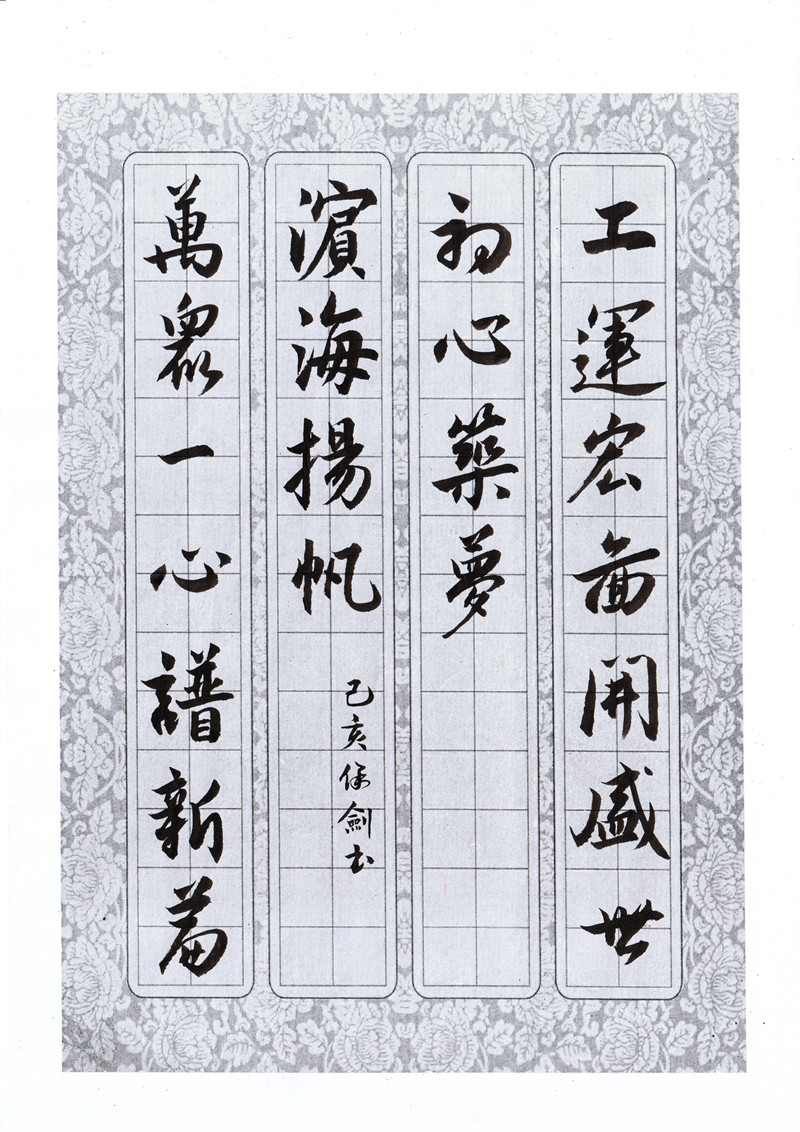 工運宏圖開盛世
初心築夢
萬眾一心譜新篇
濱海揚帆
己亥劍書